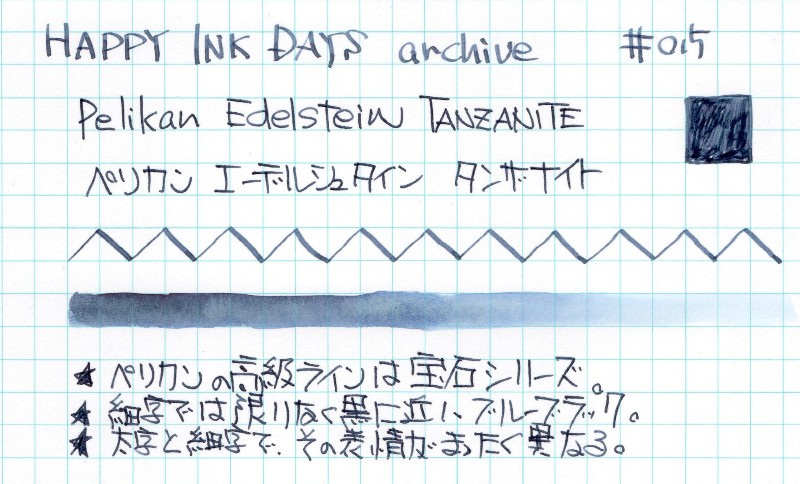 HAPPY INK DAYS archive #015
Pelikan Edelstein TANZANITE
ペリカン エーデルシュタイン タンザナイト
★ ペリカンの高級ラインは宝石シリーズ。
★ 細字では限りなく黒に近い、ブルーブラック。
★ 太字と細字で、その表情がまったく異なる。